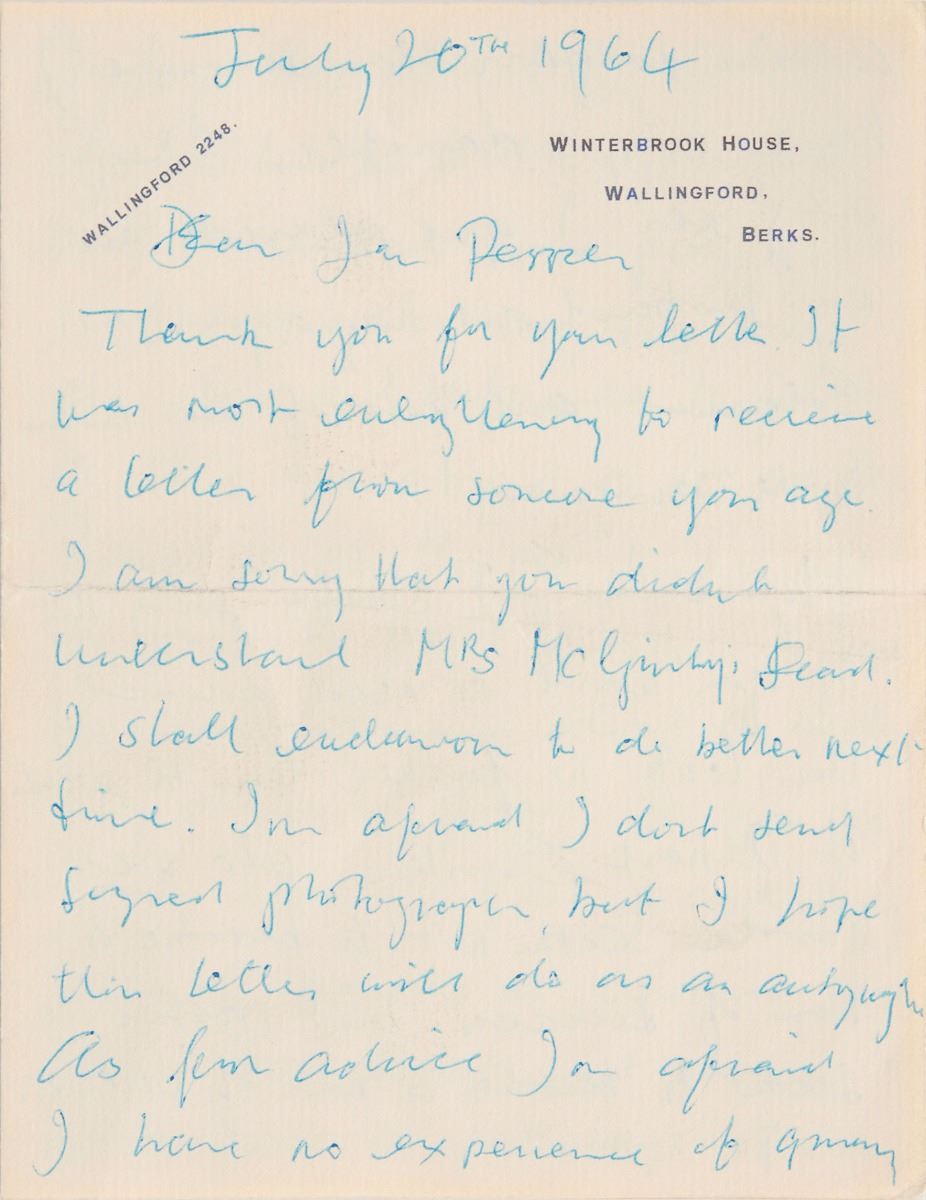 July 20TH 1964
WALLINGFORD 2248.
WINTERBROOK HOUSE,
WALLINGFORD,
BERKS.
Dear Jan Pepper
Thank you for your letter. It
was most enlightening to receive
a letter from someone your age.
I am sorry that you didn't
understand MRS McGinty's Dead.
I shall endeavour to do better next
time. I'm afraid I don't send
signed photographs, but I hope
this letter will do as an autograph
As for advice I'm afraid
I have no experience of